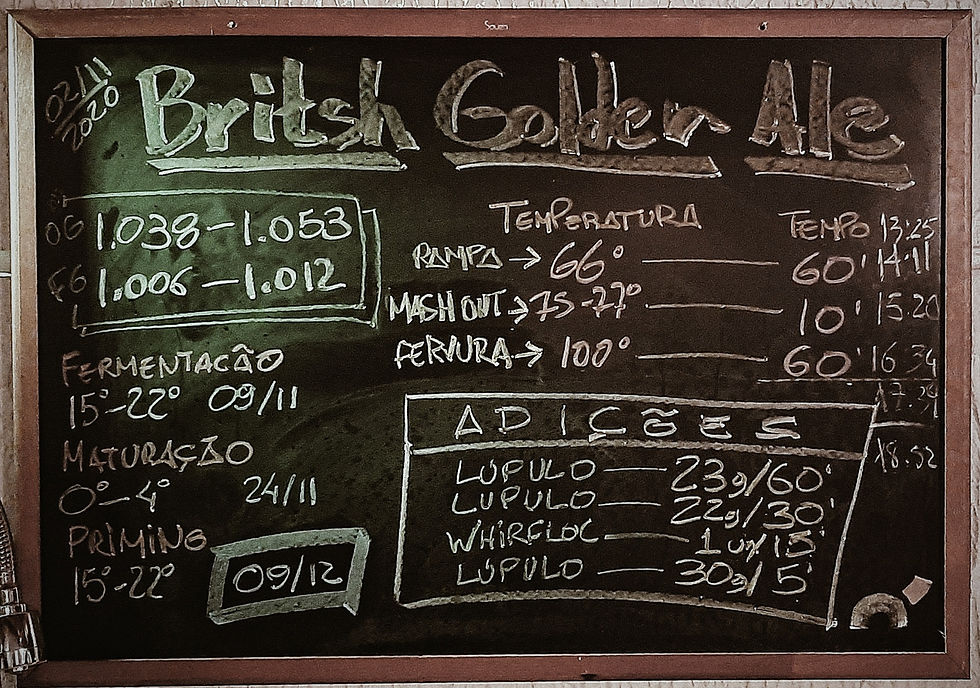 02/11
2020
Britsh Golden Ale
OG 1.038-1.053
FG 1.006-1.012
TEMPERATURA TEMPO 13:25
RAMPA → 66° 60' 14:11
MASH OUT → 75-77° 10' 15:20
FERVURA → 100° 60' 16:34
17:39
18:52
FERMENTAÇÃO
15°-22° 09/11
MATURAÇÃO
0°-4° 24/11
PRIMING
15°-22° 09/12
ADIÇÕES
LÚPULO 23g/60'
LÚPULO 22g/30'
WHIRFLOC 1 un/15'
LÚPULO 30g/5'